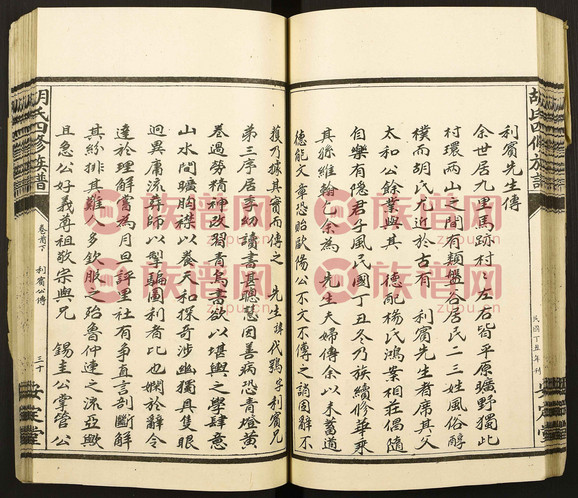 胡氏四修族譜
利賓先生傳
余世居九里馬跡村村之左右皆平原曠野獨此
村環兩山之間有類盤谷居民二三姓風俗醇
樸而胡氏尤近於古有利賓先生者席其父
太和公餘業與其德配楊氏鴻案相莊偶隨
自樂有隱君子風民國丁丑冬乃族續修華乘
其孫維翰乞余為先生夫婦傳余以未蓄道
德能文章恐貽歐陽公不文不傳之誚固辭不
民國丁丑年刊
安定堂
獲乃據其實而傳之先生諱代鵷字利賓兄
弟三序居季幼讀書喜聰慧因善病恐青燈黃
卷過勞精神改習青烏書欲以堪輿之學肆意
山水間曠胸襟以養天和探奇涉幽獨具隻眼
迥異庸流葬師以學騙圖利者比也嫻於辭令
達於理解嘗為月旦評里社有爭直言剖斷解
其紛排其難人多欽服之殆魯仲連之流亞歟
且急公好義尊祖敬宗與兄錫圭公掌管公
胡氏四修族譜
卷首下
利賓公傳
三十
安定堂
族谱网
zupu.cn